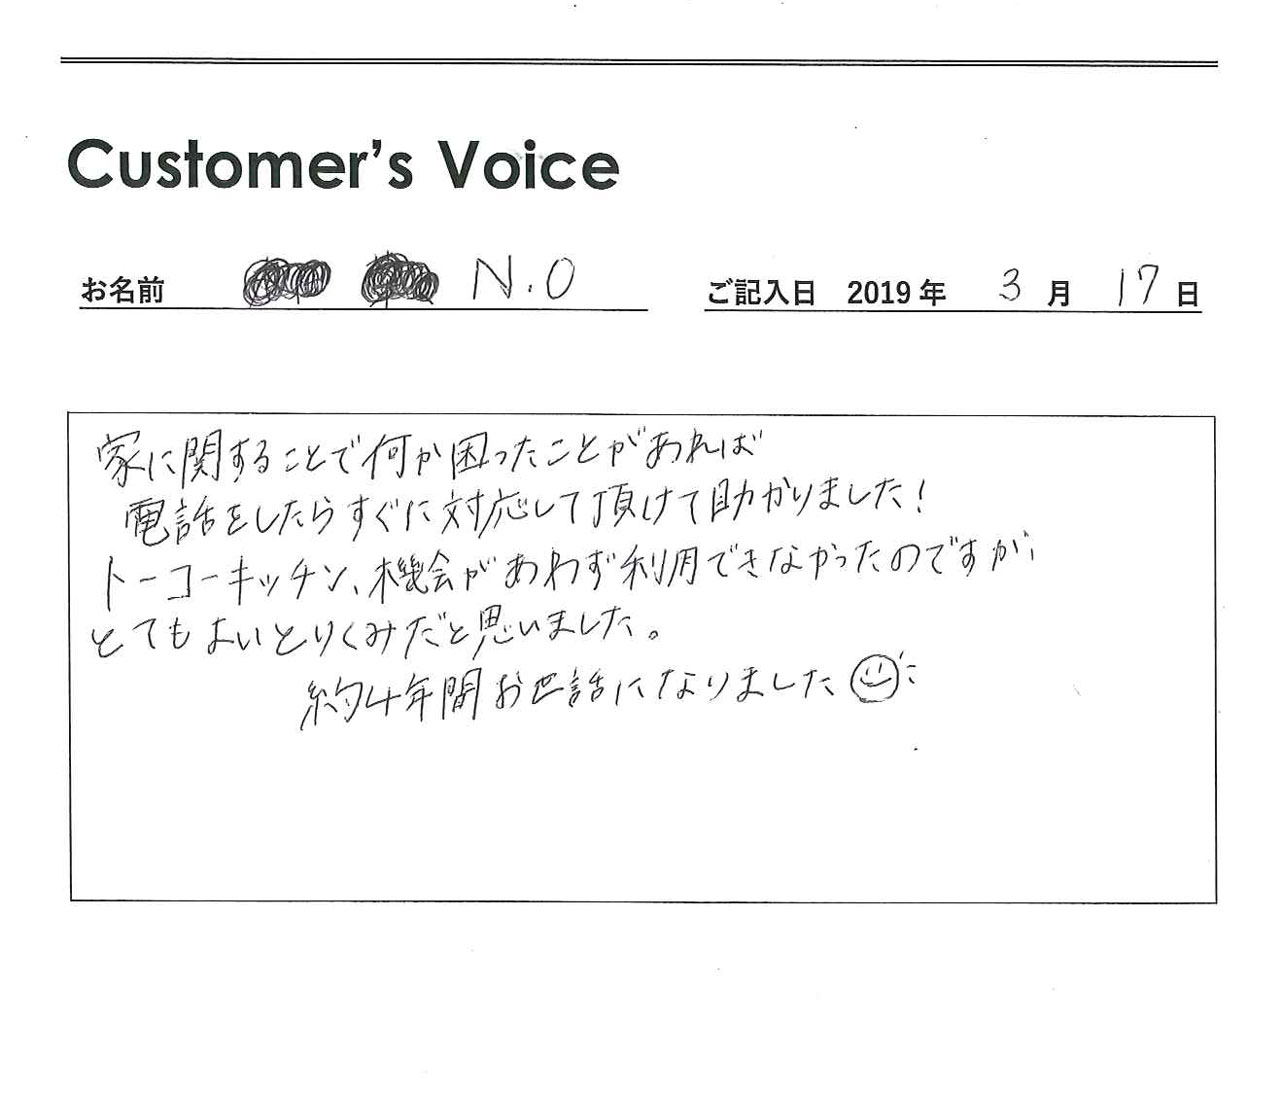 Customer's Voice
お名前 N.O ご記入日 2019年 3月 17日
家に関することで何か困ったことがあれば
電話をしたらすぐに対応して頂けて助かりました!
トーコーキッチン、機会があわず利用できなかったのですが、
とてもよいとりくみだと思いました。
約4年間お世話になりました